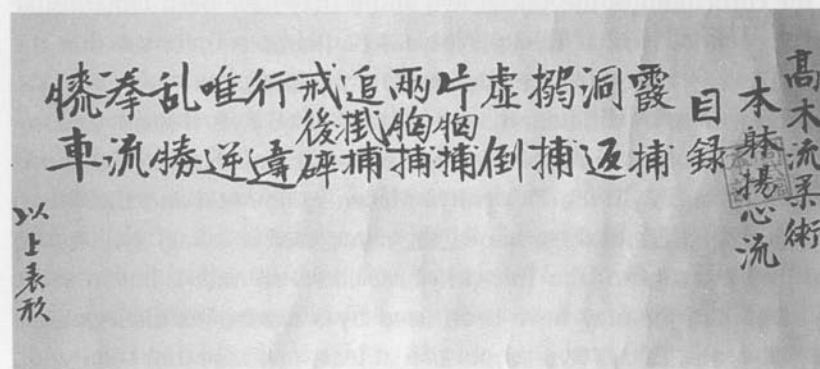 髙木流柔術
本躰揚心流
目録
霞捕
洞返
搦捕
虚倒
片胸捕
兩胸捕
追掛捕
戒後砕
行違
唯逆
乱勝
拳流
膝車
以上表形